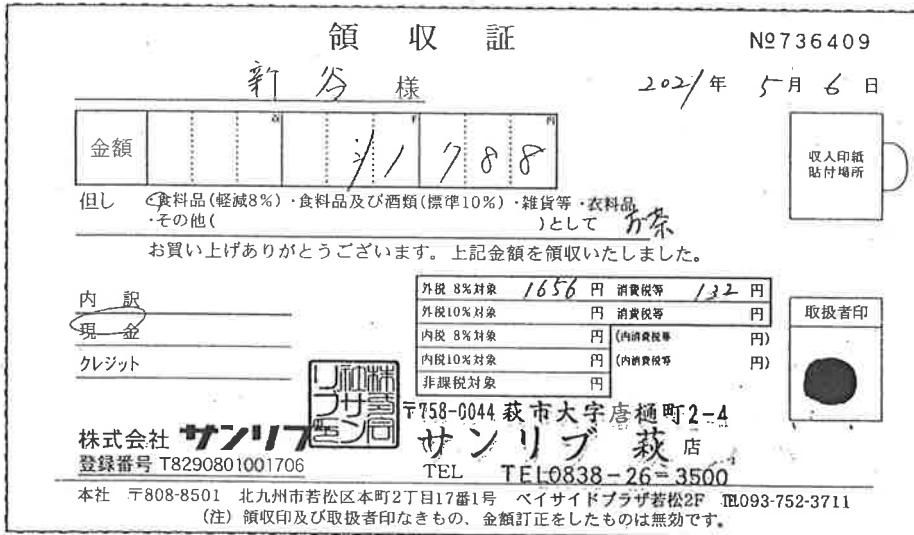 領収証
№736409
新谷 様
2021年 5月 6日
百 千 円
金額 ¥1788
収入印紙
貼付場所
但し ・食料品(軽減8%)・食料品及び酒類(標準10%)・雑貨等・衣料品
・その他( )として お茶
お買い上げありがとうございます。上記金額を領収いたしました。
内訳
現金
クレジット
外税 8%対象 1656 円 消費税等 132 円
外税10%対象 円 消費税等 円
内税 8%対象 円 (内消費税等 円)
内税10%対象 円 (内消費税等 円)
非課税対象 円
取扱者印
株式会社サンリブ
〒758-0044 萩市大字唐樋町2-4
株式会社 サンリブ
サンリブ 萩 店
登録番号 T8290801001706
TEL TEL0838-26-3500
本社 〒808-8501 北九州市若松区本町2丁目17番1号 ベイサイドプラザ若松2F ℡093-752-3711
(注) 領収印及び取扱者印なきもの、金額訂正をしたものは無効です。